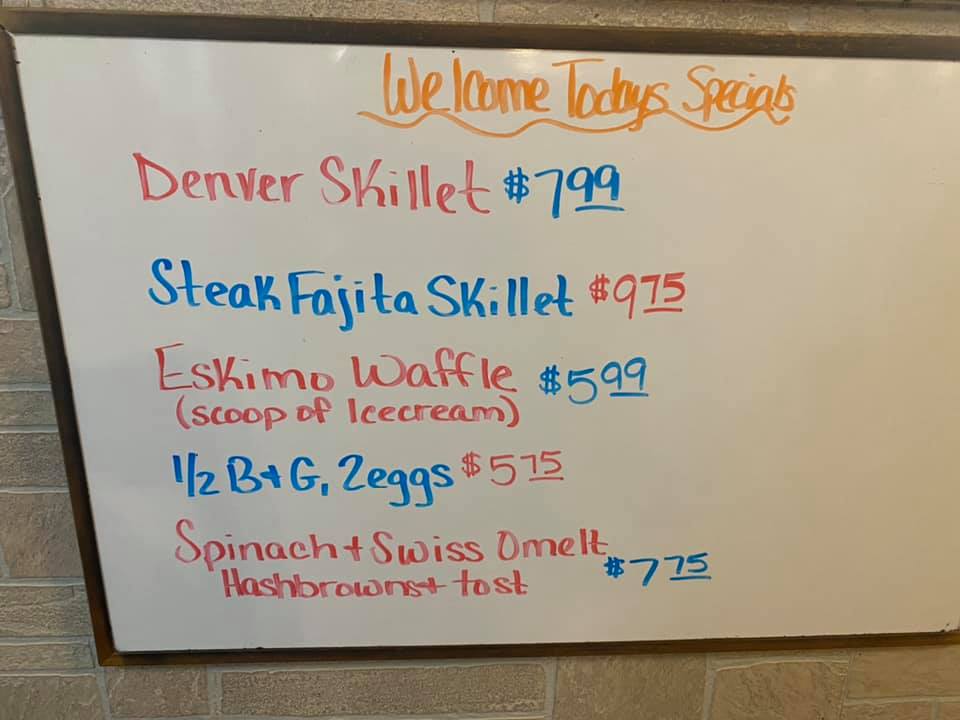 Welcome Todays Specials
Denver Skillet $7 99
Steak Fajita Skillet $9 75
Eskimo Waffle $5 99
(scoop of Icecream)
1/2 B+G, 2eggs $5 75
Spinach + Swiss Omelt $7 75
Hashbrowns+ tost